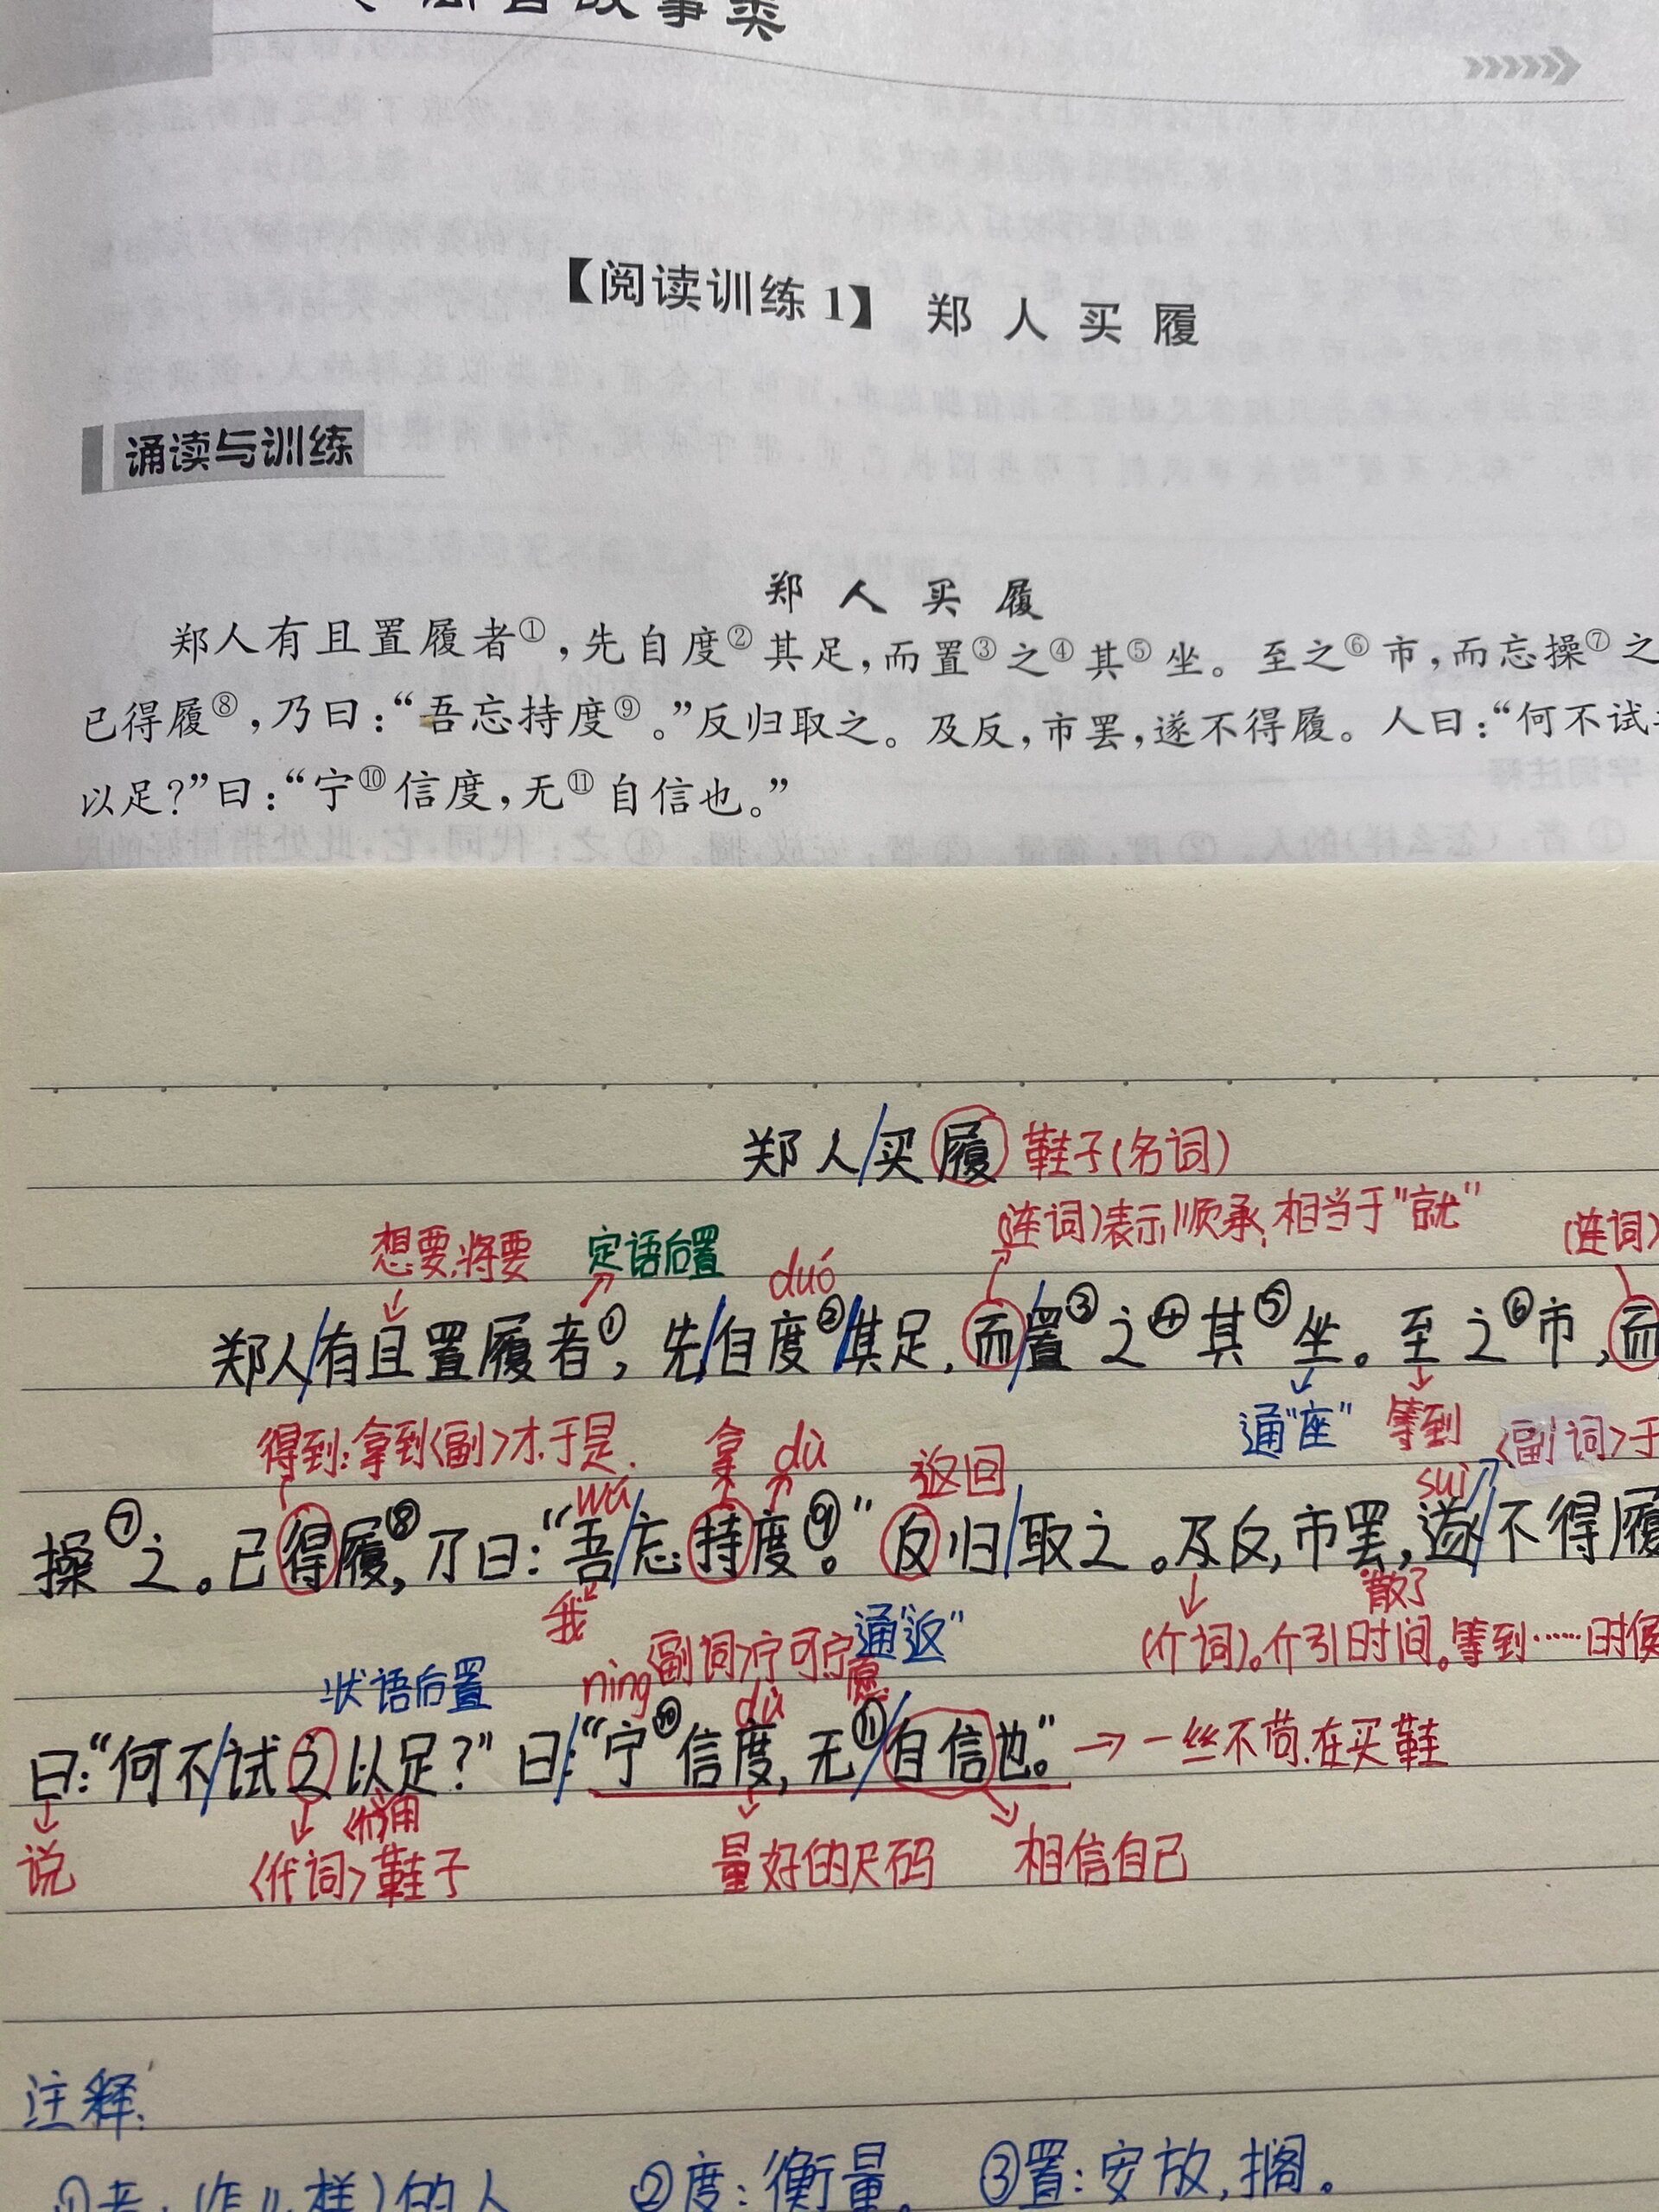 故事类
【阅读训练1】 郑人买履
诵读与训练
郑人买履
郑人有且置履者①,先自度②其足,而置③之④其⑤坐。至之⑥市,而忘操⑦之
已得履⑧,乃曰:“吾忘持度⑨。”反归取之。及反,市罢,遂不得履。人曰:“何不试
以足?”曰:“宁⑩信度,无⑪自信也。”
郑人/买履 鞋子(名词)
(连词)表示顺承,相当于"就"
想要,将要 定语后置 duó (连词)
郑人/有且置履者①,先/自度②/其足,而/置③之④其⑤坐。至之⑥市,而
通"座" 等到
得到:拿到<副>才.于是. 拿 dù 返回 <副词>于
wú suì
操⑦之。已得履⑧,乃曰:“吾/忘持度⑨。”反归/取之。及反,市罢,遂/不得履
我 通"返" 散了
(介词)。介引时间。等到……时候
状语后置 nìng <副词>宁可,宁愿 dù
曰:“何不/试之以足?”曰:/“宁⑩信度,无⑪/自信也。” → 一丝不苟.在买鞋
说 <代词>鞋子 <介>用 量好的尺码 相信自己
注释:
①者:(怎么样)的人 ②度:衡量。 ③置:安放,搁。